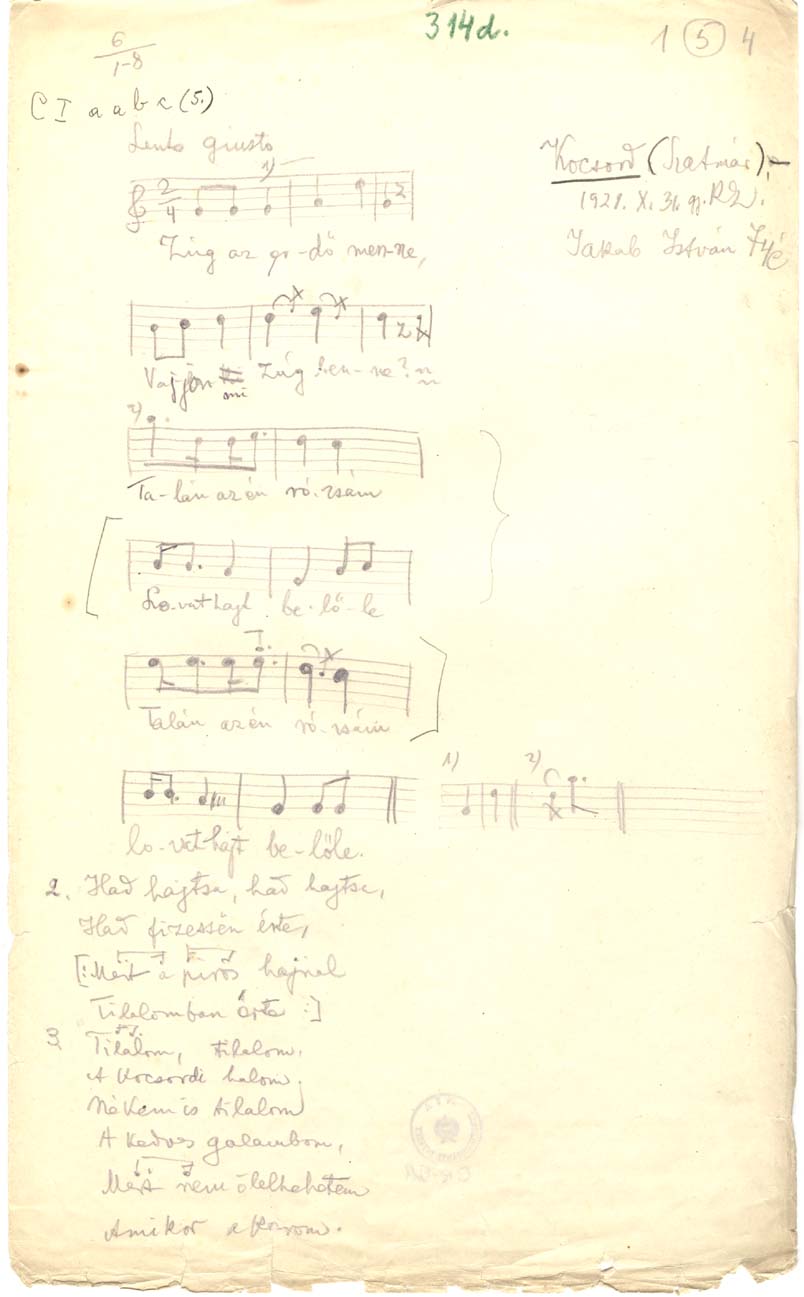 314d.
1 (5) 4
6/1-8
C I a a b c (5.)
Lento giusto
Kocsord (Szatmár),
1921. X. 31. gy.
Jakab István
1)
2/4
Zúg az er-dő men-ne,
Vaj-jon mi zúg ben-ne?
2)
Ta-lán az én ró-zsám
Lo-vat hajt be-lő-le
Talán az én ró-zsám
lo-vat hajt be-lőle.
1) 2)
2. Had hajtsa, had hajtsa,
Had fizessën érte,
[: Mert a piros hajnal
Tilalomban érte :]
3. Tilalom, tilalom.
A Kocsordi halom.
Nékem is tilalom
A kedves galambom,
Mért nem ölelhehetem
Amikor akarom.